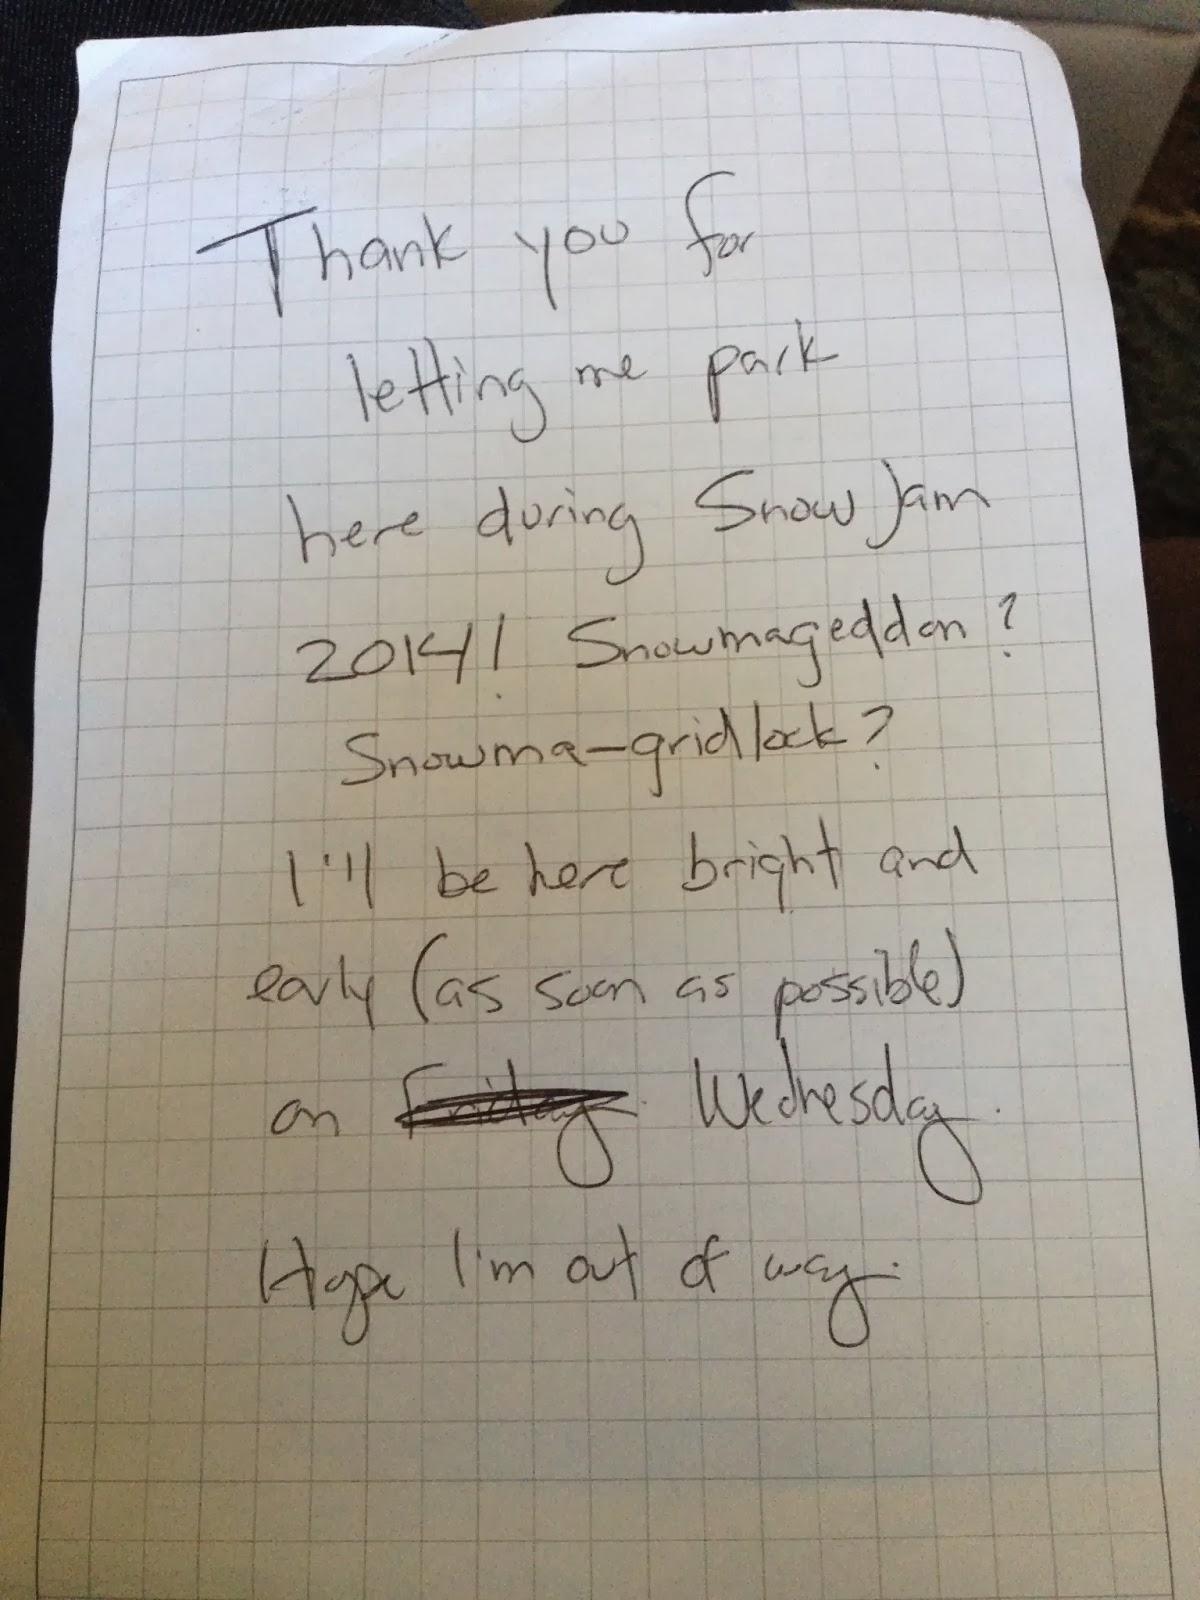 Thank you for
letting me park
here during Snow Jam
2014! Snowmageddon?
Snowma-gridlock?
I'll be here bright and
early (as soon as possible)
on Friday. Wednesday.
Hope I'm out of way.